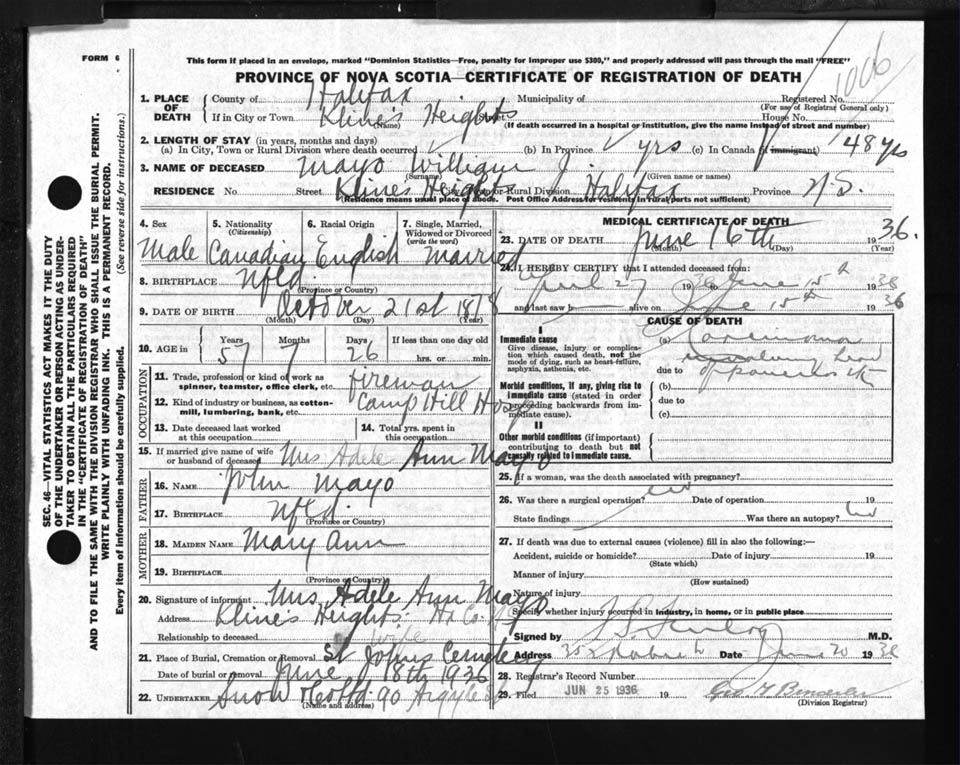 FORM 6
This form if placed in an envelope, marked "Dominion Statistics—Free, penalty for improper use $300," and properly addressed will pass through the mail "FREE"
PROVINCE OF NOVA SCOTIA—CERTIFICATE OF REGISTRATION OF DEATH
1006
SEC. 46—VITAL STATISTICS ACT MAKES IT THE DUTY
OF THE UNDERTAKER OR PERSON ACTING AS UNDER-
TAKER TO OBTAIN ALL THE PARTICULARS REQUIRED
IN THE "CERTIFICATE OF REGISTRATION OF DEATH"
AND TO FILE THE SAME WITH THE DIVISION REGISTRAR WHO SHALL ISSUE THE BURIAL PERMIT.
WRITE PLAINLY WITH UNFADING INK. THIS IS A PERMANENT RECORD.
Every item of information should be carefully supplied. (See reverse side for instructions.)
1. PLACE OF DEATH
County of Halifax Municipality of Registered No.
(For use of Registrar General only)
If in City or Town Kline's Heights Street House No.
(Name) (If death occurred in a hospital or institution, give the name instead of street and number)
2. LENGTH OF STAY (in years, months and days)
(a) In City, Town or Rural Division where death occurred (b) In Province yrs (c) In Canada if immigrant 48 yrs
3. NAME OF DECEASED Mayo William J.
(Surname) (Given name or names)
RESIDENCE No Street Klines Heights City, Town or Rural Division Halifax Province N.S.
(Residence means usual place of abode. Post Office Address for residents in rural parts not sufficient)
4. Sex 5. Nationality (Citizenship) 6. Racial Origin 7. Single, Married, Widowed or Divorced (write the word)
Male Canadian English Married
8. BIRTHPLACE Nfld.
(Province or Country)
9. DATE OF BIRTH October 21st 1878
(Month) (Day) (Year)
10. AGE in Years Months Days If less than one day old
57 7 26 hrs. or min.
OCCUPATION
11. Trade, profession or kind of work as spinner, teamster, office clerk, etc. fireman
12. Kind of industry or business, as cotton-mill, lumbering, bank, etc. Camp Hill Hosp
13. Date deceased last worked at this occupation
14. Total yrs. spent in this occupation
15. If married give name of wife or husband of deceased Mrs Adele Ann Mayo
FATHER
16. NAME John Mayo
17. BIRTHPLACE Nfld.
(Province or Country)
MOTHER
18. MAIDEN NAME Mary Ann
19. BIRTHPLACE
(Province or Country)
20. Signature of informant Mrs Adele Ann Mayo
Address Kline's Heights, Hx Co.
Relationship to deceased wife
21. Place of Burial, Cremation or Removal St Johns Cemetery
Date of burial or removal June 18th 1936
22. UNDERTAKER Snow & Co Ltd. 90 Argyle St
(Name and address)
MEDICAL CERTIFICATE OF DEATH
23. DATE OF DEATH June 16th 1936.
(Month) (Day) (Year)
24. I HEREBY CERTIFY that I attended deceased from:
April 27 1936 to June 15th 1936
and last saw h alive on June 15th 1936
CAUSE OF DEATH
I
Immediate cause
Give disease, injury or complication which caused death, not the mode of dying, such as heart failure, asphyxia, asthenia, etc.
(a) Carcinoma
due to
Morbid conditions, if any, giving rise to immediate cause (stated in order proceeding backwards from immediate cause).
(b)
due to
(c)
II
Other morbid conditions (if important) contributing to death but not causally related to immediate cause.
25. If a woman, was the death associated with pregnancy?
26. Was there a surgical operation? no Date of operation 19
State findings Was there an autopsy? no
27. If death was due to external causes (violence) fill in also the following:—
Accident, suicide or homicide? Date of injury 19
(State which)
Manner of injury
(How sustained)
Nature of injury
Specify whether injury occurred in industry, in home, or in public place
Signed by M.D.
Address Date June 20 1936
28. Registrar's Record Number
29. Filed JUN 25 1936
(Division Registrar)